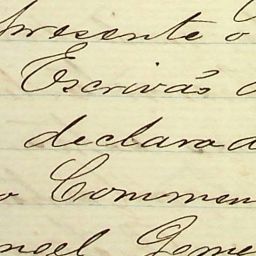 presente o
Escrivão
declarad
o Commen
noel Gome